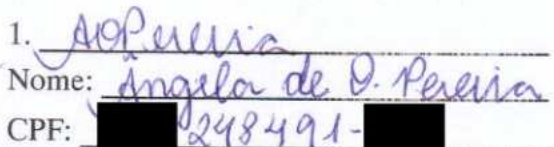 1. AOPereira
Nome: Ângela de O. Pereira
CPF: 248491-